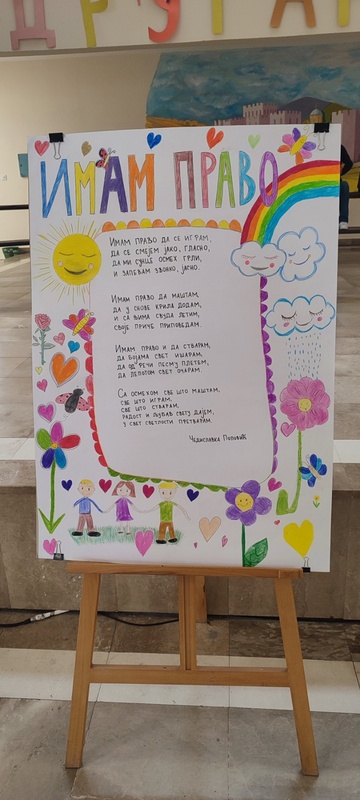 ДРУГАР
ИМАМ ПРАВО
Имам право да се играм,
да се смејем јако, гласно,
да ми сунце осмех грли,
и запевам звонко, јасно.
Имам право да маштам,
да у снове крила додам,
и са њима свуда летим,
своје приче приповедам.
Имам право и да стварам,
да бојама свет ишарам,
да од речи песму плетем,
да лепотом свет очарам.
Са осмехом све што маштам,
све што играм,
све што стварам,
радост и љубав свету дајем,
у свет светлости претварам.
Чедиславка Поповић